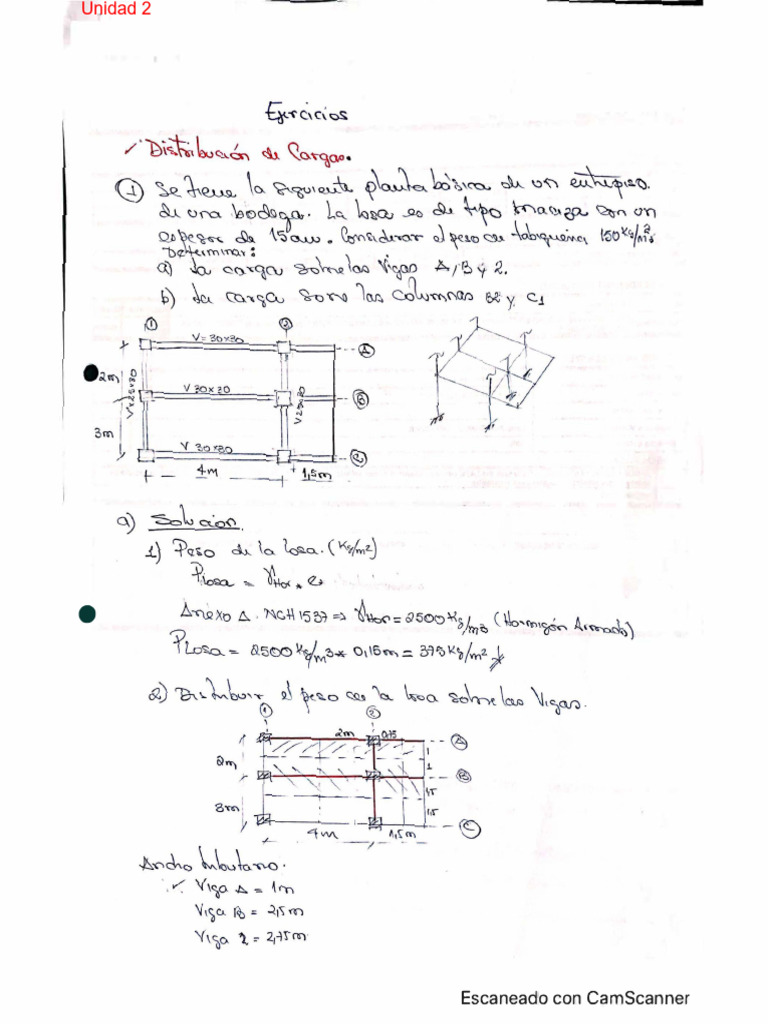 Unidad 2
Ejercicios
✓ Distribución de Cargas.
① Se tiene la siguiente planta básica de un entrepiso
de una bodega. La losa es de tipo maciza con un
espesor de 15cm. Considerar el peso de tabiquería 150 Kg/m².
Determinar:
a) La carga sobre las Vigas A, B y 2.
b) La carga sobre las columnas B2 y C1
① ②
V=30x30
A
2m
V=25x30
V 30x30
V25x30
B
3m
V 30x30
4m
1,5m
a) Solución.
1) Peso de la losa. (Kg/m²)
Plosa = γHor * e
Anexo A. NCH1537 => γHor = 2500 Kg/m3 (Hormigón Armado)
PLosa = 2500 Kg/m3 * 0,15m = 375 Kg/m²
2) Distribuir el peso de la losa sobre las Vigas.
① ②
2m 0,75
A
2m
1
1
B
3m
1,5
1,5
C
4m 1,5m
Ancho tributario.
✓ Viga A = 1m
Viga B = 2,5m
Viga 2 = 2,75m
Escaneado con CamScanner